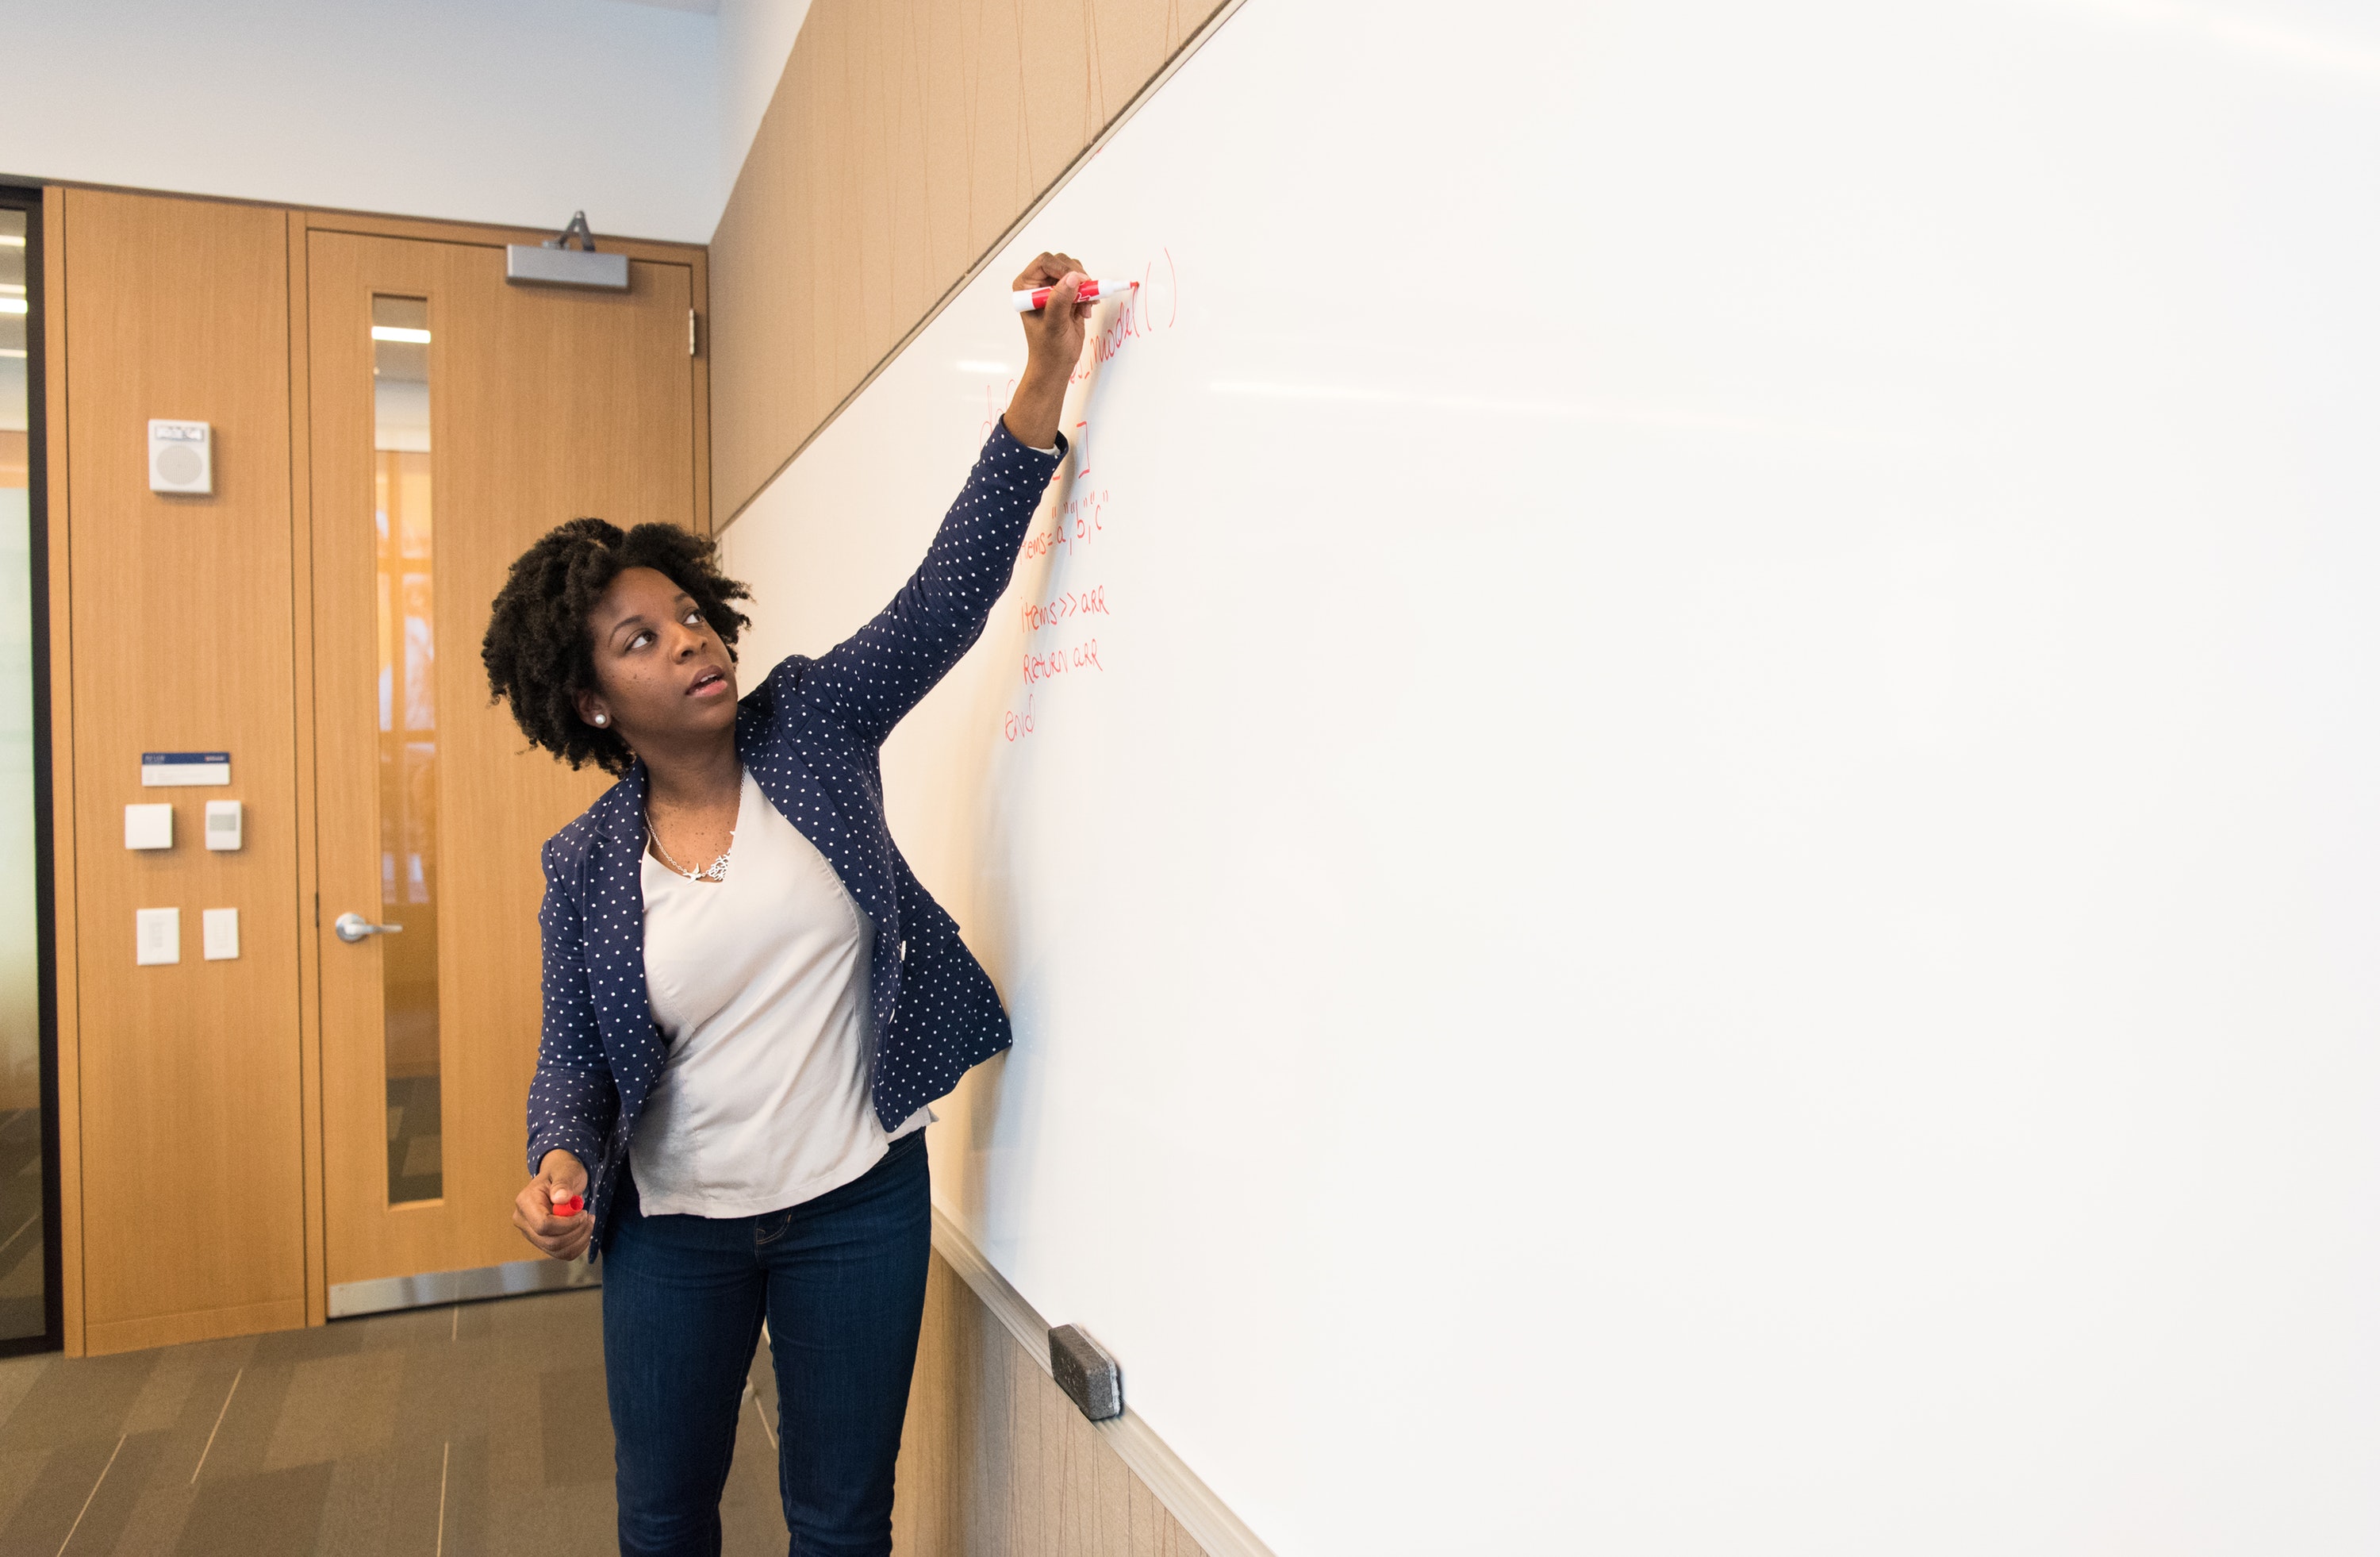 def _model( )
]
items="a","b","c"
items>>arr
return arr
end